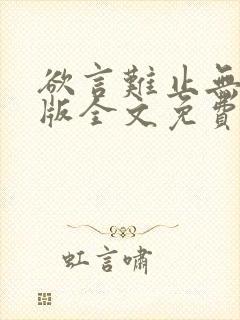 欲言難止無
版全文免費
虹言嘯